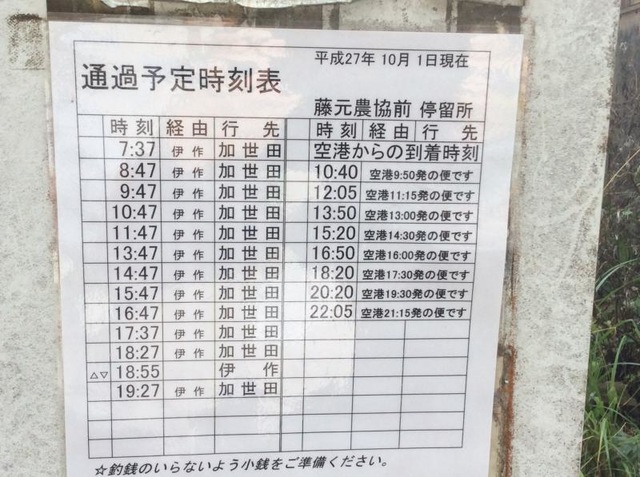 平成27年 10月 1日現在
通過予定時刻表
藤元農協前 停留所
時刻 経由 行先
7:37 伊作 加世田
8:47 伊作 加世田
9:47 伊作 加世田
10:47 伊作 加世田
11:47 伊作 加世田
13:47 伊作 加世田
14:47 伊作 加世田
15:47 伊作 加世田
16:47 伊作 加世田
17:37 伊作 加世田
18:27 伊作 加世田
△▽ 18:55 伊作
19:27 伊作 加世田
時刻 経由 行先
空港からの到着時刻
10:40 空港9:50発の便です
12:05 空港11:15発の便です
13:50 空港13:00発の便です
15:20 空港14:30発の便です
16:50 空港16:00発の便です
18:20 空港17:30発の便です
20:20 空港19:30発の便です
22:05 空港21:15発の便です
☆釣銭のいらないよう小銭をご準備ください。